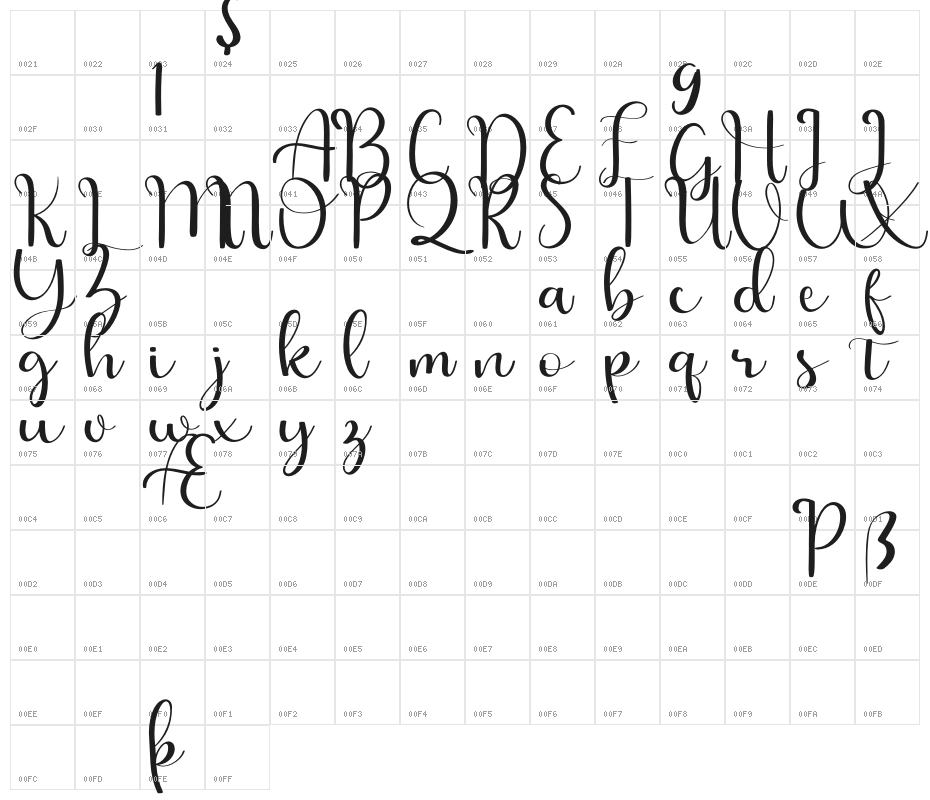 $
0021 0022 0023 0024 0025 0026 0027 0028 0029 002A 002B 002C 002D 002E
1 9
002F 0030 0031 0032 0033 0034 0035 0036 0037 0038 0039 003A 003B 003C
A B C D E F G H I J
003D 003E 003F 0040 0041 0042 0043 0044 0045 0046 0047 0048 0049 004A
K L M N O P Q R S T U V W X
004B 004C 004D 004E 004F 0050 0051 0052 0053 0054 0055 0056 0057 0058
Y Z a b c d e f
0059 005A 005B 005C 005D 005E 005F 0060 0061 0062 0063 0064 0065 0066
g h i j k l m n o p q r s t
0067 0068 0069 006A 006B 006C 006D 006E 006F 0070 0071 0072 0073 0074
u v w x y z
0075 0076 0077 0078 0079 007A 007B 007C 007D 007E 00C0 00C1 00C2 00C3
Æ
00C4 00C5 00C6 00C7 00C8 00C9 00CA 00CB 00CC 00CD 00CE 00CF 00D0 00D1
Þ ß
00D2 00D3 00D4 00D5 00D6 00D7 00D8 00D9 00DA 00DB 00DC 00DD 00DE 00DF
00E0 00E1 00E2 00E3 00E4 00E5 00E6 00E7 00E8 00E9 00EA 00EB 00EC 00ED
00EE 00EF 00F0 00F1 00F2 00F3 00F4 00F5 00F6 00F7 00F8 00F9 00FA 00FB
þ
00FC 00FD 00FE 00FF